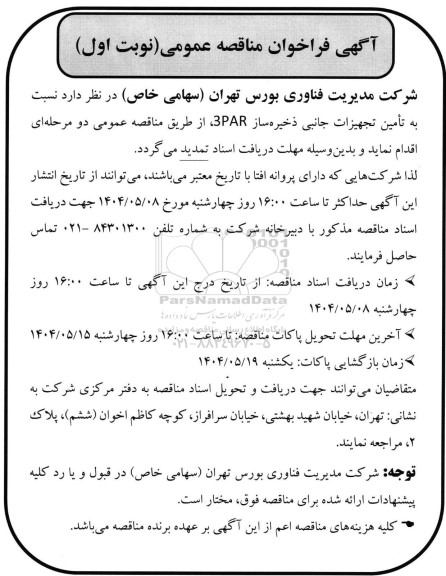 آگهی فراخوان مناقصه عمومی(نوبت اول)
شرکت مدیریت فناوری بورس تهران (سهامی خاص) در نظر دارد نسبت
به تأمین تجهیزات جانبی ذخیره‌ساز 3PAR، از طریق مناقصه عمومی دو مرحله‌ای
اقدام نماید و بدین‌وسیله مهلت دریافت اسناد تمدید می‌گردد.
لذا شرکت‌هایی که دارای پروانه افتا با تاریخ معتبر می‌باشند، می‌توانند از تاریخ انتشار
این آگهی حداکثر تا ساعت ۱۶:۰۰ روز چهارشنبه مورخ ۱۴۰۴/۰۵/۰۸ جهت دریافت
اسناد مناقصه مذکور با دبیرخانه شرکت به شماره تلفن ۸۴۳۰۱۳۰۰ -۰۲۱ تماس
حاصل فرمایند.
زمان دریافت اسناد مناقصه: از تاریخ درج این آگهی تا ساعت ۱۶:۰۰ روز
چهارشنبه ۱۴۰۴/۰۵/۰۸
ParsNamadData
آخرین مهلت تحویل پاکات مناقصه: تا ساعت ۱۶:۰۰ روز چهارشنبه ۱۴۰۴/۰۵/۱۵
۰۲۱-۸۸۳۴۹۶۷۰-۵
زمان بازگشایی پاکات: یکشنبه ۱۴۰۴/۰۵/۱۹
متقاضیان می‌توانند جهت دریافت و تحویل اسناد مناقصه به دفتر مرکزی شرکت به
نشانی: تهران، خیابان شهید بهشتی، خیابان سرافراز، کوچه کاظم اخوان (ششم)، پلاک
۲، مراجعه نمایند.
توجه: شرکت مدیریت فناوری بورس تهران (سهامی خاص) در قبول و یا رد کلیه
پیشنهادات ارائه شده برای مناقصه فوق، مختار است.
کلیه هزینه‌های مناقصه اعم از این آگهی بر عهده برنده مناقصه می‌باشد.